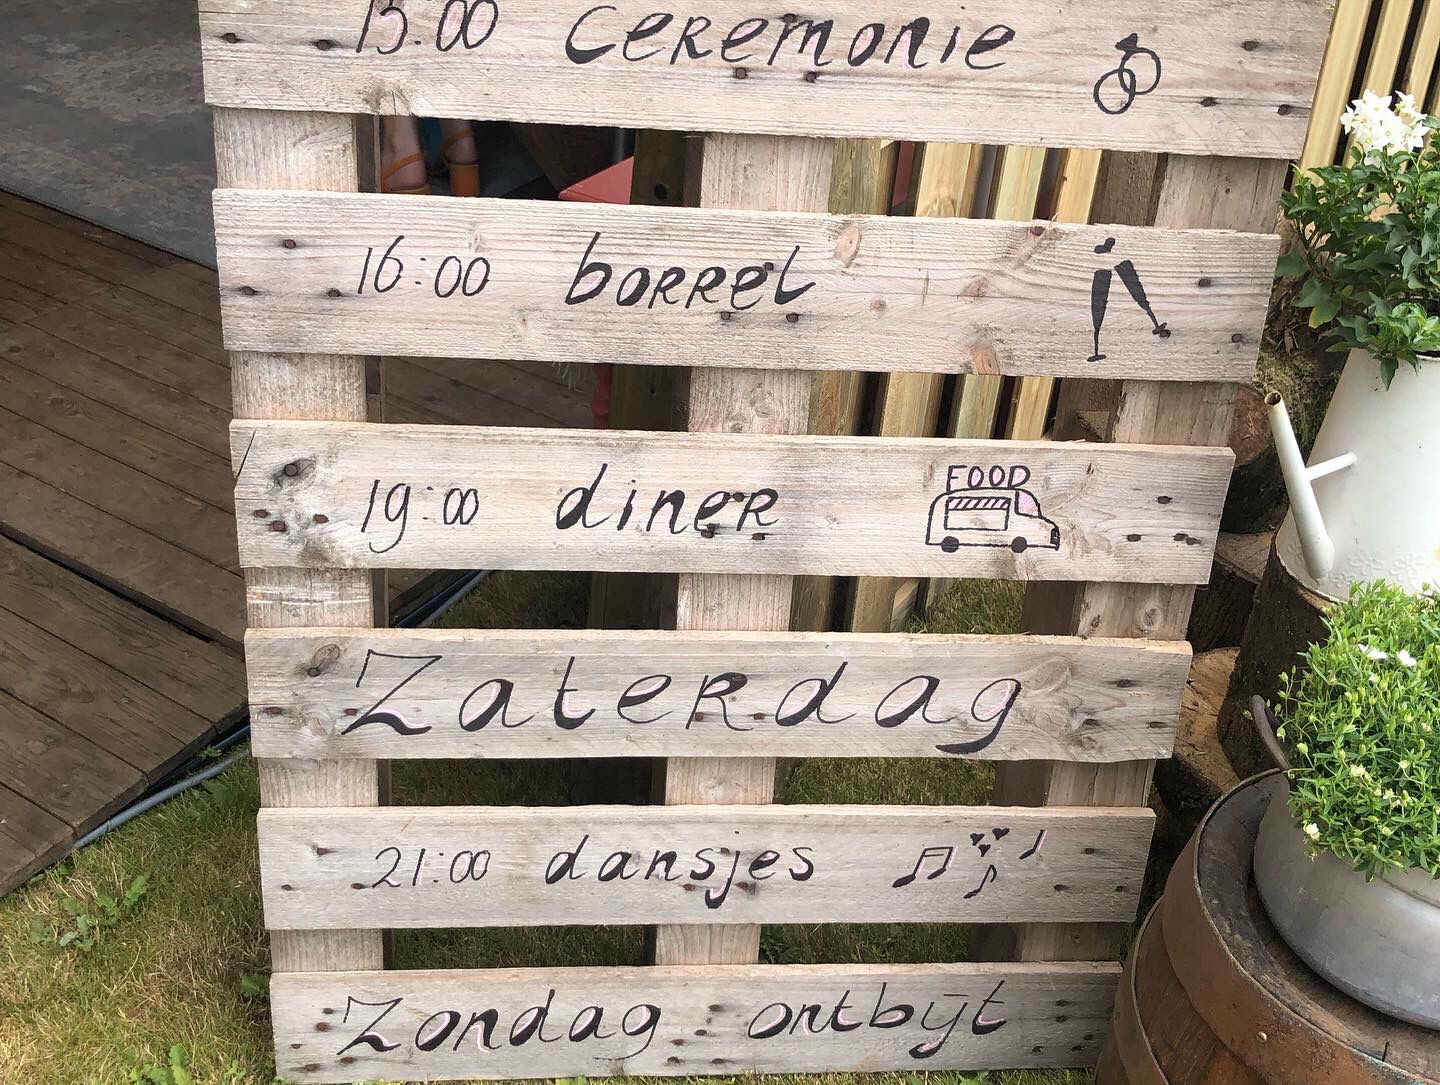 15:00 ceremonie
16:00 borrel
19:00 diner FOOD
Zaterdag
21:00 dansjes
Zondag ontbijt